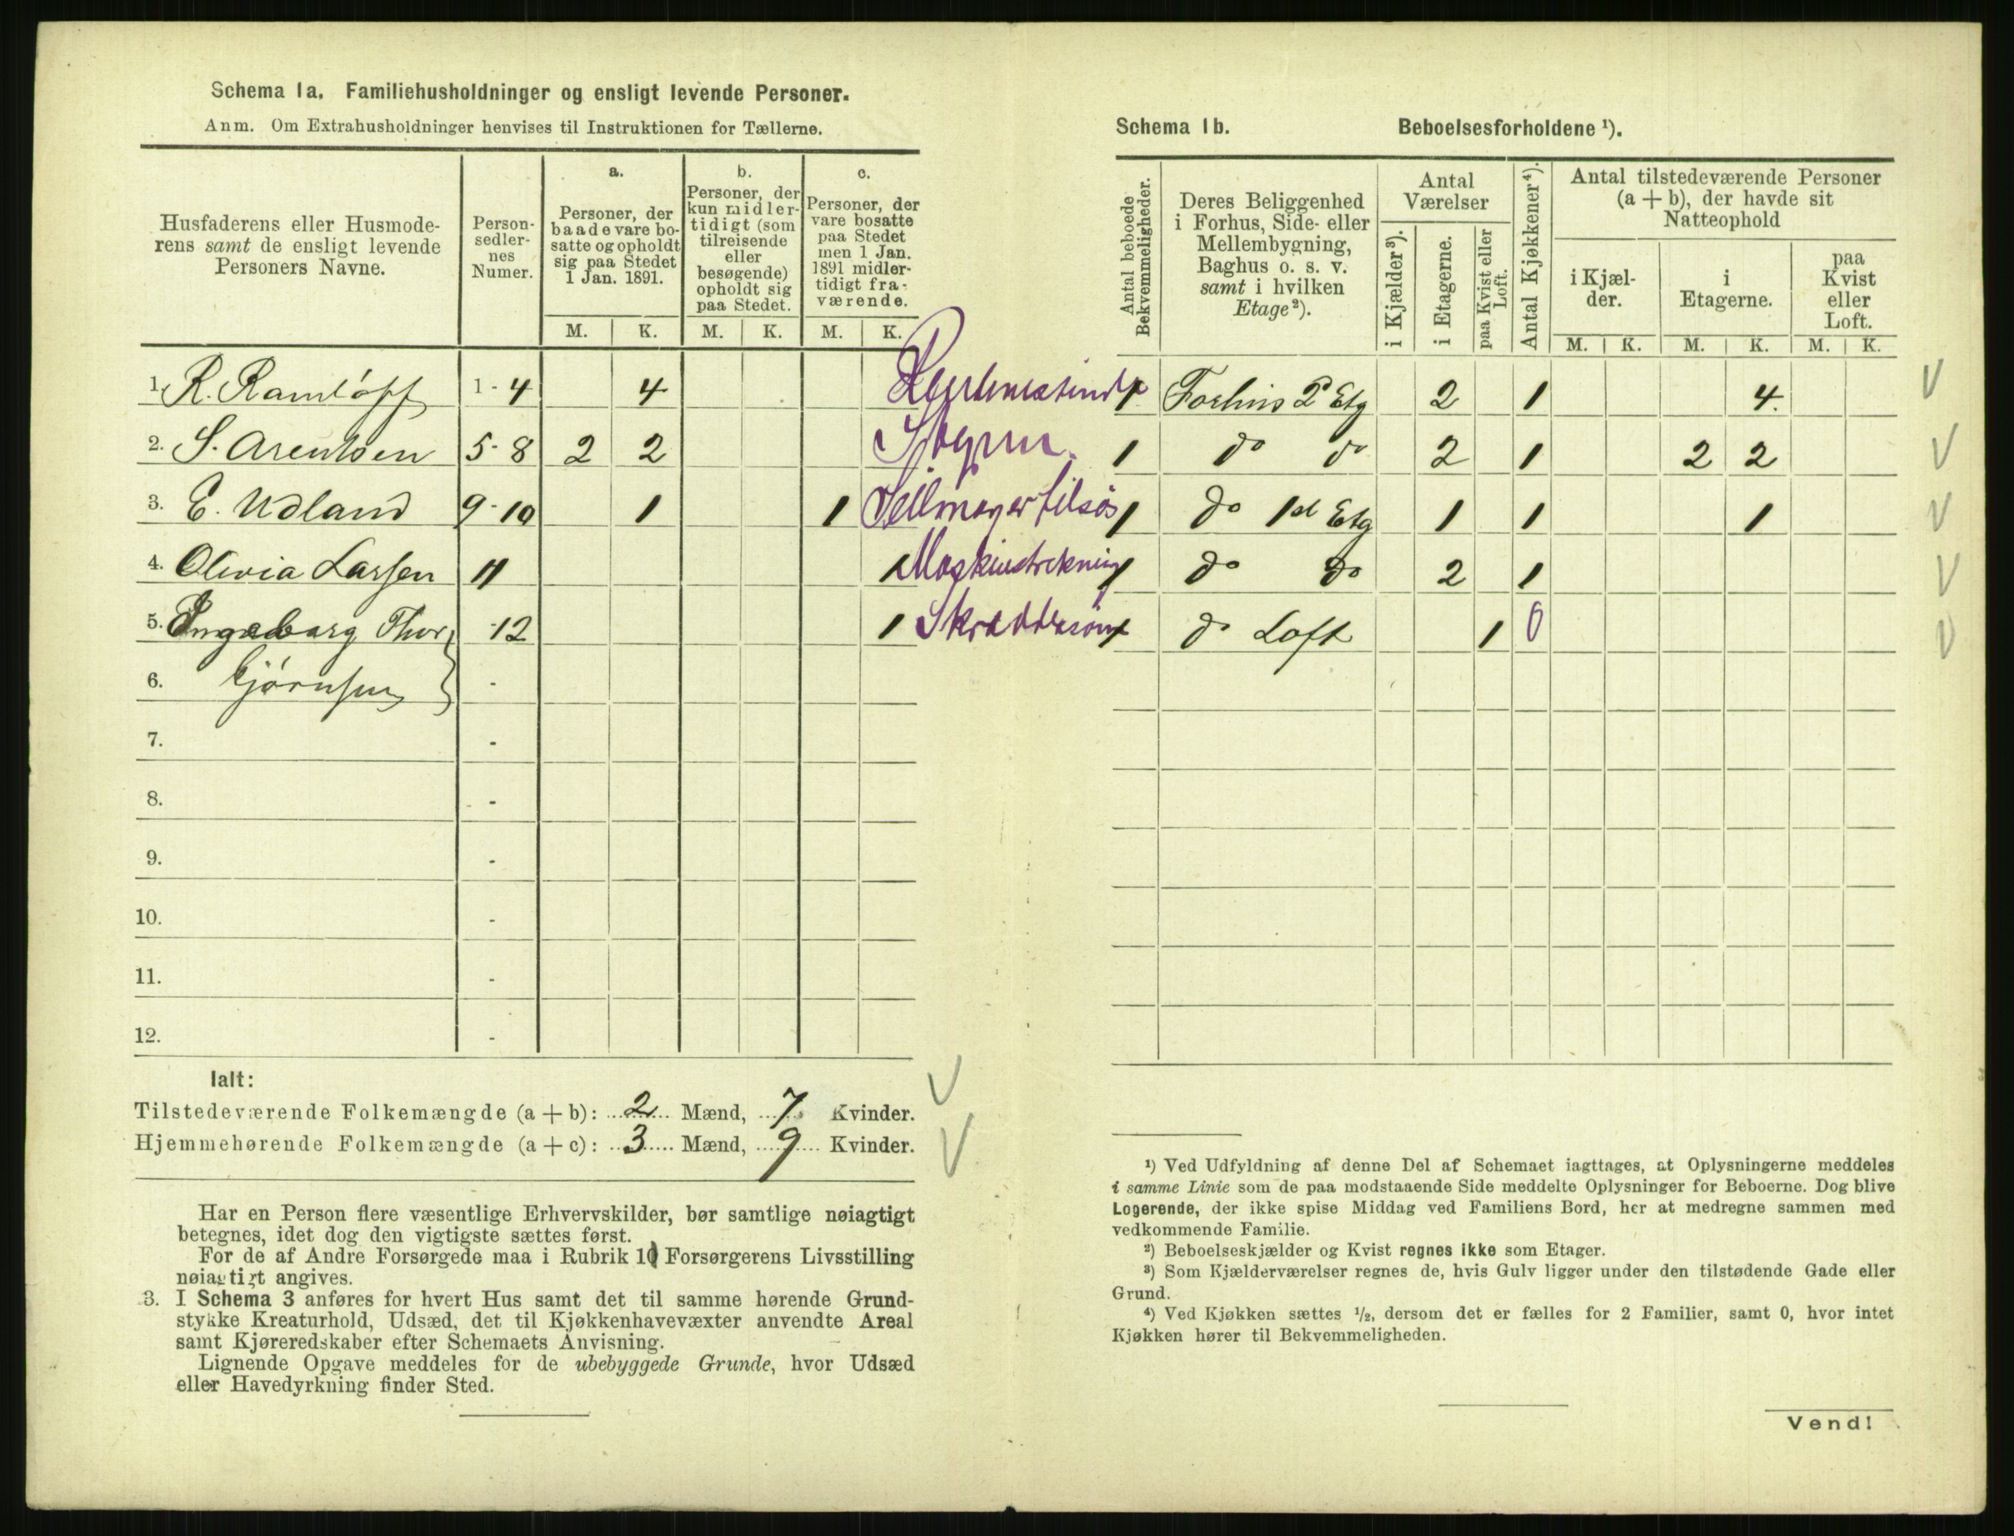 Schema 1a. Familiehusholdninger og ensligt levende Personer.
Anm. Om Extrahusholdninger henvises til Instruktionen for Tællerne.
Husfaderens eller Husmode-
rens samt de ensligt levende
Personers Navne.
Person-
sedler-
nes
Numer.
a.
Personer, der
baade vare bo-
satte og opholdt
sig paa Stedet
1 Jan. 1891.
b.
Personer, der
kun midler-
tidigt (som
tilreisende
eller
besøgende)
opholdt sig
paa Stedet.
c.
Personer, der
vare bosatte
paa Stedet
men 1 Jan.
1891 midler-
tidigt fra-
værende.
M. K. M. K. M. K.
1. R. Ramløff 1-4 4
2. S. Arentsen 5-8 2 2
3. E. Udland 9-10 1 1
4. Olivia Larsen 11 1
5. Ingeborg Thor 12 1
6. bjørnsen -
7. -
8. -
9. -
10. -
11. -
12. -
Ialt:
Tilstedeværende Folkemængde (a + b): 2 Mænd, 7 Kvinder.
Hjemmehørende Folkemængde (a + c): 3 Mænd, 9 Kvinder.
Har en Person flere væsentlige Erhvervskilder, bør samtlige nøiagtigt
betegnes, idet dog den vigtigste sættes først.
For de af Andre Forsørgede maa i Rubrik 10 Forsørgerens Livsstilling
nøiagtigt angives.
3. I Schema 3 anføres for hvert Hus samt det til samme hørende Grund-
stykke Kreaturhold, Udsæd, det til Kjøkkenhavevæxter anvendte Areal
samt Kjøreredskaber efter Schemaets Anvisning.
Lignende Opgave meddeles for de ubebyggede Grunde, hvor Udsæd
eller Havedyrkning finder Sted.
Schema 1b. Beboelsesforholdene ¹).
Antal beboede
Bekvemmeligheder.
Deres Beliggenhed
i Forhus, Side- eller
Mellembygning,
Baghus o. s. v.
samt i hvilken
Etage ²).
Antal
Værelser
i Kjælder ³).
i Etagerne.
paa Kvist eller
Loft.
Antal Kjøkkener ⁴).
Antal tilstedeværende Personer
(a + b), der havde sit
Natteophold
i Kjæl-
der.
i
Etagerne.
paa
Kvist
eller
Loft.
M. K. M. K. M. K.
1 Forhus 2d Etg 2 1 4
1 do do 2 1 2 2
1 do 1st Etg 1 1 1
1 do do 2 1
1 do Loft 1 0
¹) Ved Udfyldning af denne Del af Schemaet iagttages, at Oplysningerne meddeles
i samme Linie som de paa modstaaende Side meddelte Oplysninger for Beboerne. Dog blive
Logerende, der ikke spise Middag ved Familiens Bord, her at medregne sammen med
vedkommende Familie.
²) Beboelseskjælder og Kvist regnes ikke som Etager.
³) Som Kjælderværelser regnes de, hvis Gulv ligger under den tilstødende Gade eller
Grund.
⁴) Ved Kjøkken sættes ½, dersom det er fælles for 2 Familier, samt 0, hvor intet
Kjøkken hører til Bekvemmeligheden.
Vend!